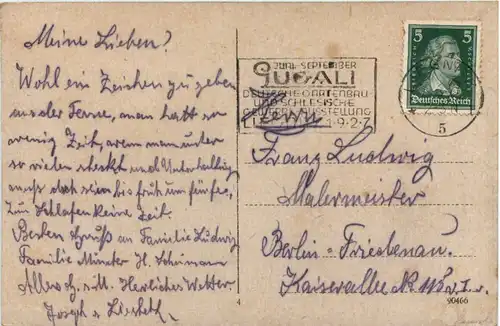 Meine Lieben!
Wohl ein Zeichen zu geben
aus der Ferne, man hatt so
wenig Zeit, wenn man unter
so vielen steckt und Unterhaltung
muss doch sein bis früh um fünfe.
Zum Schlafen keine Zeit.
Besten Gruß an Familie Ludwig
Familie Münster H. Scheumann
Herrliches Wetter
Joseph u Liesbeth
JUNI-SEPTEMBER
GUGALI
DEUTSCHE GARTENBAU-
UND SCHLESISCHE
GEWERBEAUSSTELLUNG
LIEGNITZ 1927
5 5
FRIEDRICH V. SCHILLER
Deutsches Reich
5
Herrn
Franz Ludwig
Malermeister
Berlin-Friedenau.
Kaiserallee N 118 v. I.
4
90466